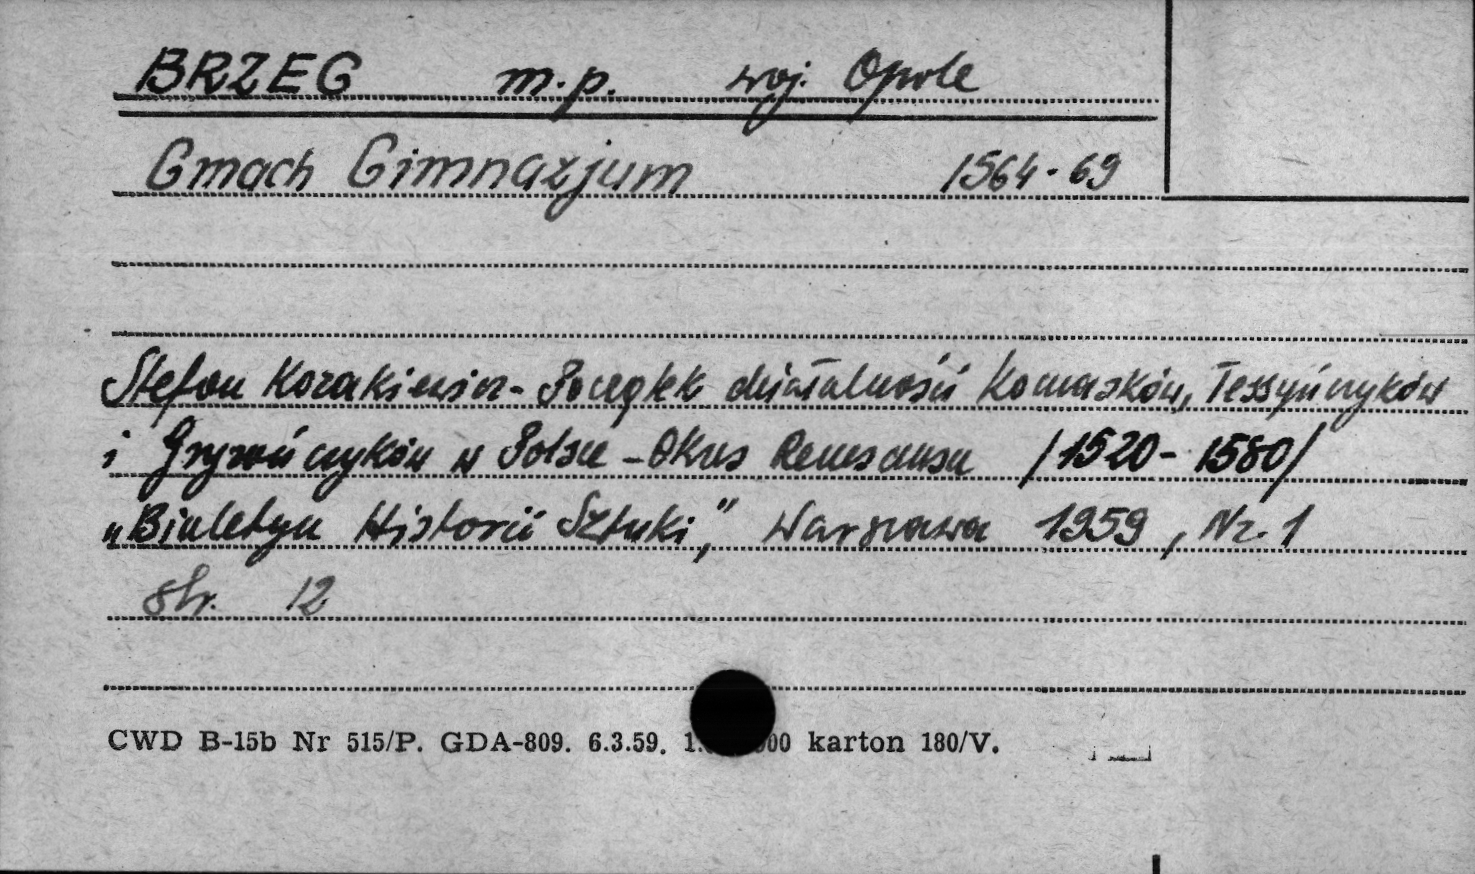 BRZEG m.p. woj. Opole
Gmach Gimnazjum 1564-69
Stefan Kozakiewicz - Początek działalności Komasków, Tessyńczyków
i Gryzończyków w Polsce - Okres Renesansu /1520-1580/
"Biuletyn Historii Sztuki," Warszawa 1959, Nr. 1
str. 12
CWD B-15b Nr 515/P. GDA-809. 6.3.59. karton 180/V.